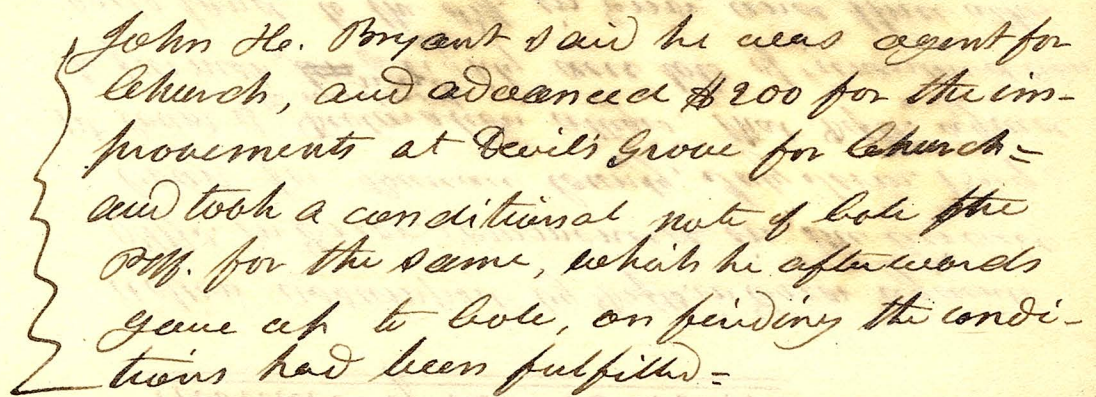 John H. Bryant said he was agent for
Church, and advanced $200 for the im-
provements at Devil's Grove for Church=
and took a conditional note of Cole the
Plff. for the same, which he afterwards
gave up to Cole, on finding the condi-
tions had been fulfilled=